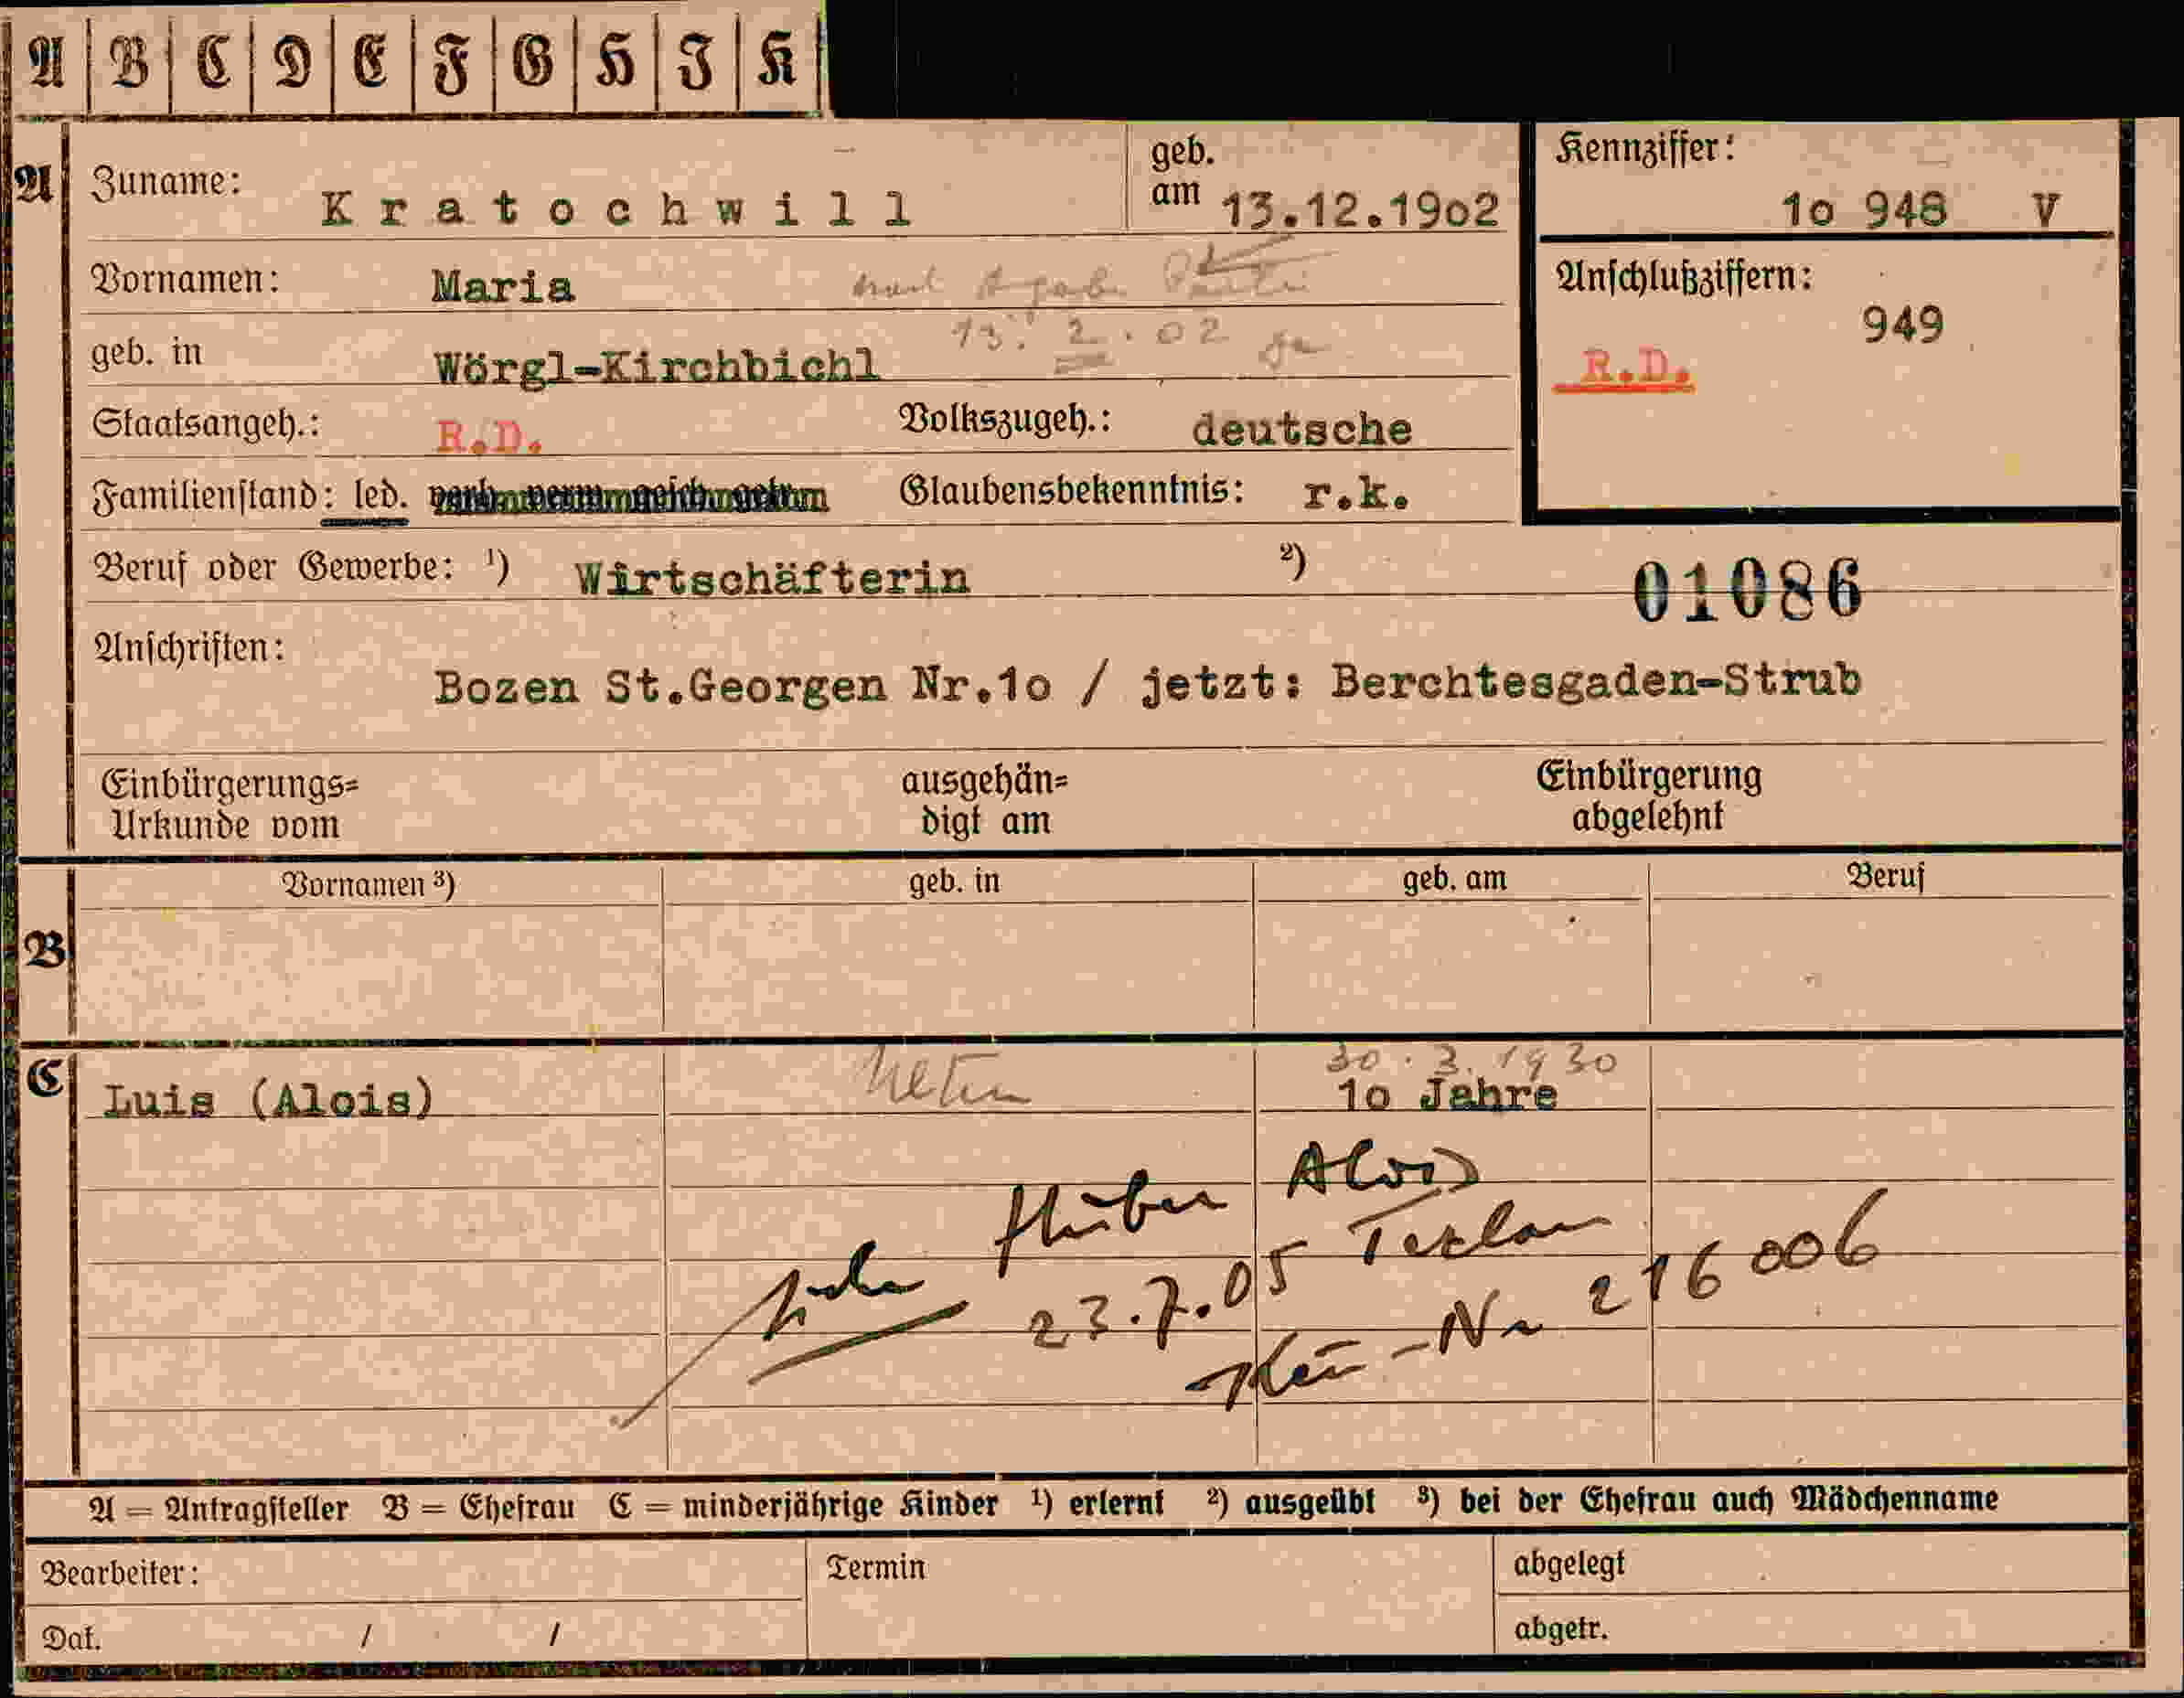 A B C D E F G H I K
A Zuname: Kratochwill geb. am 13.12.1902 Kennziffer: 10 948 V
Vornamen: Maria
Anschlußziffern: 949
13. 2. 02
geb. in Wörgl-Kirchbichl
R.D.
Staatsangeh.: R.D. Volkszugeh.: deutsche
Familienstand: led. Glaubensbekenntnis: r.k.
Beruf oder Gewerbe: ¹) Wirtschäfterin ²)
01086
Anschriften:
Bozen St.Georgen Nr.10 / jetzt: Berchtesgaden-Strub
Einbürgerungs=
Urkunde vom
ausgehän=
digt am
Einbürgerung
abgelehnt
B Vornamen ³) geb. in geb. am Beruf
30.3.1930
C Luis (Alois) 10 Jahre
siehe Huber Alois
23.7.05 Terlan
Ken-Nr 216006
A = Antragsteller B = Ehefrau C = minderjährige Kinder ¹) erlernt ²) ausgeübt ³) bei der Ehefrau auch Mädchenname
Bearbeiter: Termin abgelegt
Dat. / / abgetr.